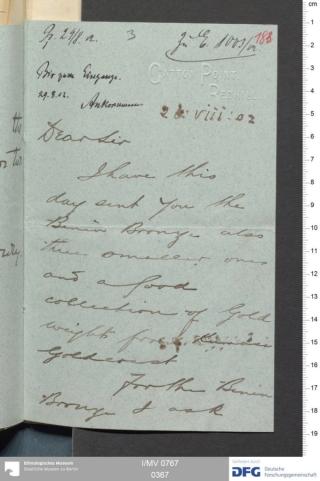 3
188
Bis zum Eingange.
29.8.02.
Caxton Point
26. viii: 02
Dear Sir
I have this
day sent you the
Benin Bronze also
three smaller ones
and a good
collection of Gold
weights from
Goldcoast
For the Benin
Bronze I ask
Ethnologisches Museum
Staatliche Museen zu Berlin
I/MV 0767
0367
gefördert durch
DFG
Deutsche
Forschungsgemeinschaft
cm
1
2
3
4
5
6
7
8
9
10
11
12
13
14
15
16
17
18
19